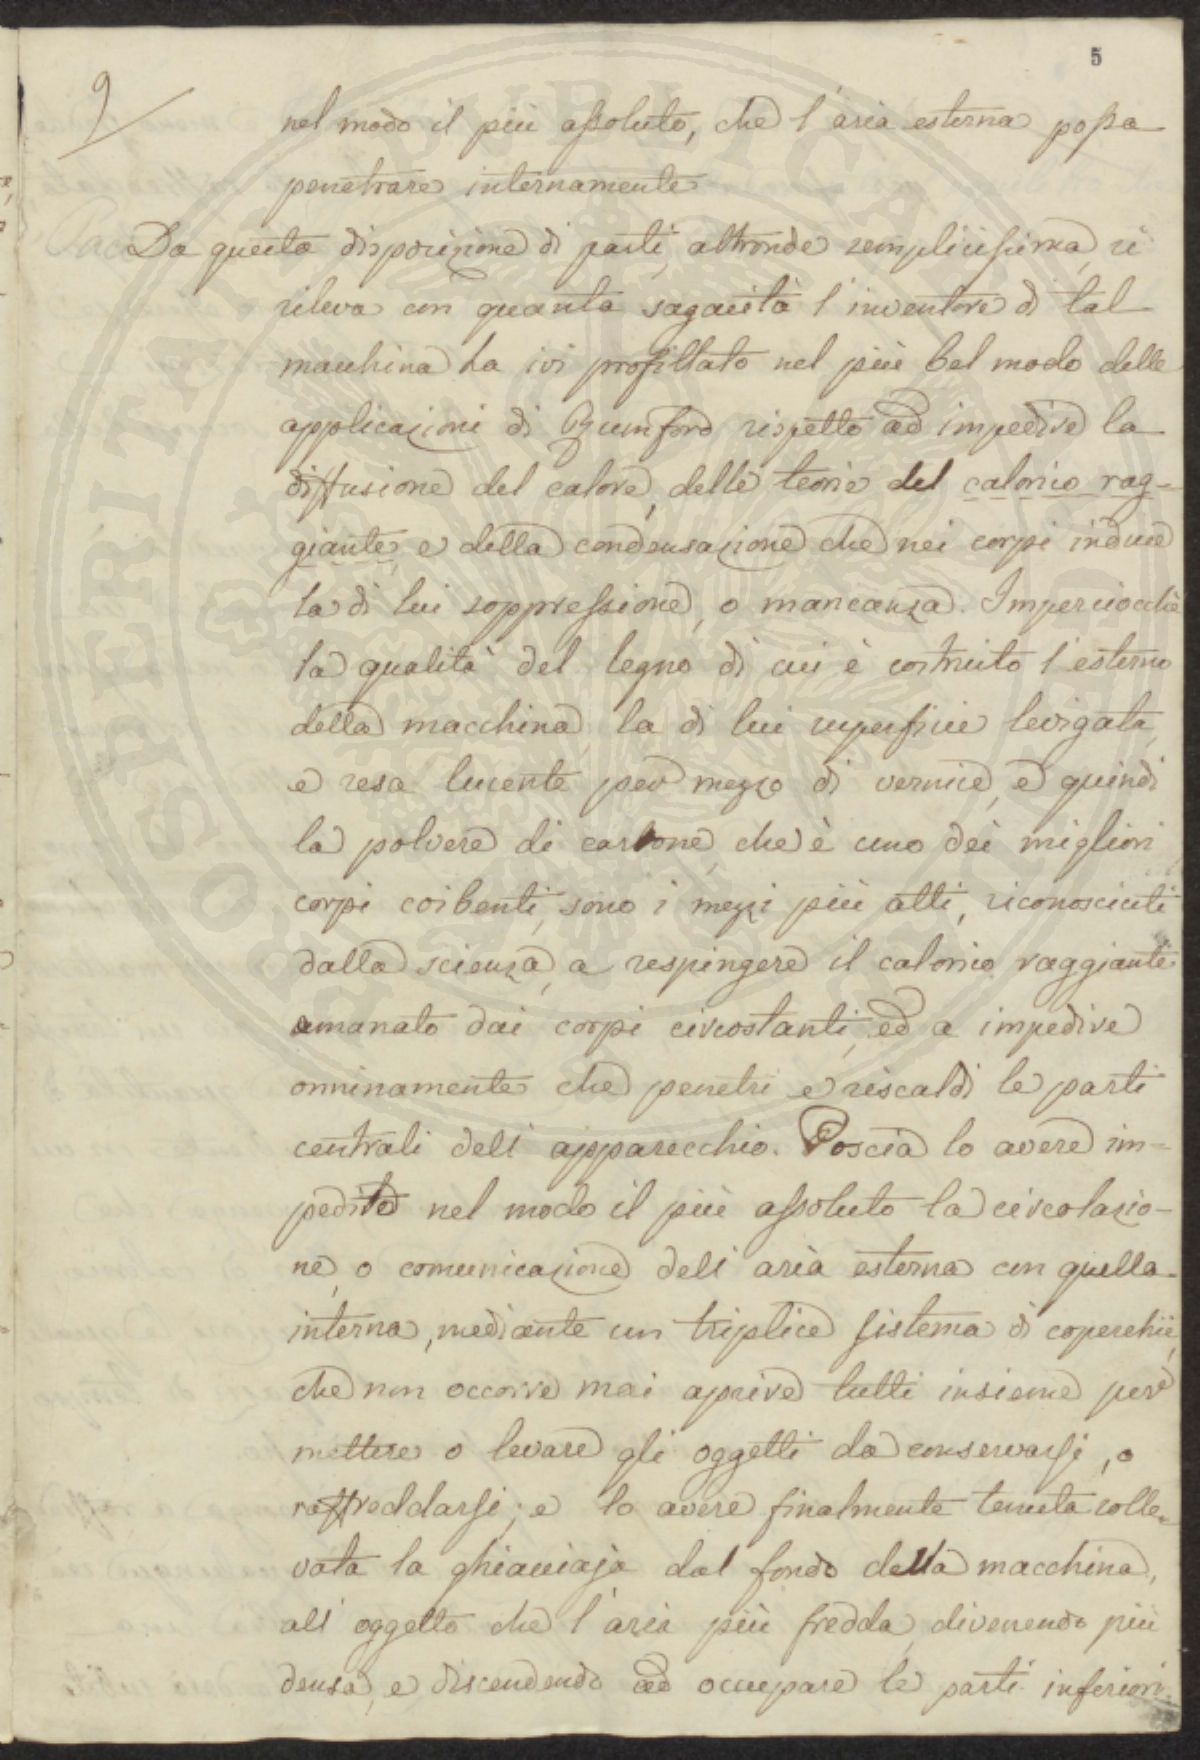 5
9
nel modo il più assoluto, che l'aria esterna possa
penetrare internamente
Da questa disposizione di parti, altronde semplicissima, si
rileva con quanta sagacità l'inventore di tal
macchina ha ivi profittato nel più bel modo delle
applicazioni di Rumford rispetto ad impedire la
diffusione del calore, delle teorie del calorico rag-
giante, e della condensazione che nei corpi induce
la di lui soppressione, o mancanza. Imperciocchè
la qualità del legno di cui è costruito l'esterno
della macchina, la di lui superficie levigata,
e resa lucente per mezzo di vernice, e quindi
la polvere di carbone, che è uno dei migliori
corpi coibenti, sono i mezzi più atti, riconosciuti
dalla scienza, a respingere il calorico raggiante
emanato dai corpi circostanti, ed a impedire
onninamente che penetri e riscaldi le parti
centrali dell'apparecchio. Poscia lo avere im-
pedito nel modo il più assoluto la circolazio-
ne, o comunicazione dell'aria esterna con quella
interna, mediante un triplice sistema di coperchii,
che non occorre mai aprire tutti insieme per
mettere o levare gli oggetti da conservarsi, o
raffreddarsi; e lo avere finalmente tenuta solle-
vata la ghiacciaja dal fondo della macchina,
all'oggetto che l'aria più fredda, divenendo più
densa, e discendendo ad occupare le parti inferiori
PROSPERITATI PUBLICAE